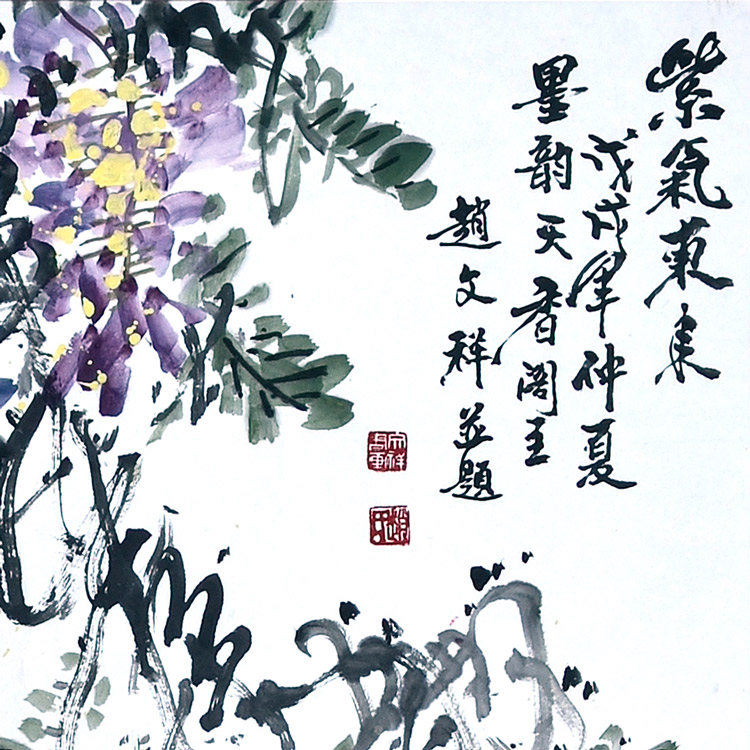 紫氣東来
戊戌年仲夏
墨韵天香阁主
趙文祥並題